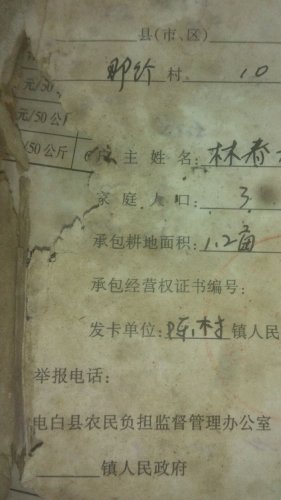 县(市、区)
元/50
村 10
元/50公斤
/50公斤
户主姓名:林春
家庭人口:3
承包耕地面积:1.2亩
承包经营权证书编号:
发卡单位:陈村镇人民
举报电话:
电白县农民负担监督管理办公室
镇人民政府